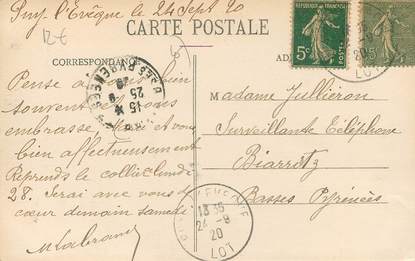 Puy l'Evêque le 24 Sept 20
12€
CARTE POSTALE
CORRESPONDANCE
AD
REPUBLIQUE FRANÇAISE
5c
POSTES
15c
LOT
BSES PYRENEES
15
25
9
20
Pense a bien
souvent et vous
embrasse, et vous
bien affectueusement
Reprends le collier lundi
28. Serai avec vous de
cœur demain samedi
Madame Jullièron
Surveillante Téléphone
Biarritz
Basses Pyrénées
PUY-L'EVEQUE
18 35
24 - 9
20
LOT